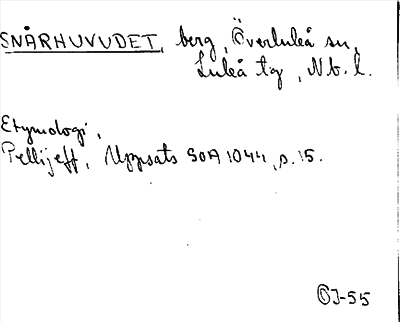 SNÅRHUVUDET, berg, Överluleå sn,
Luleå tg, Nb. l.
Etymologi,
Pellijeff, Uppsats SOA 1044, s. 15.
ÖJ-55